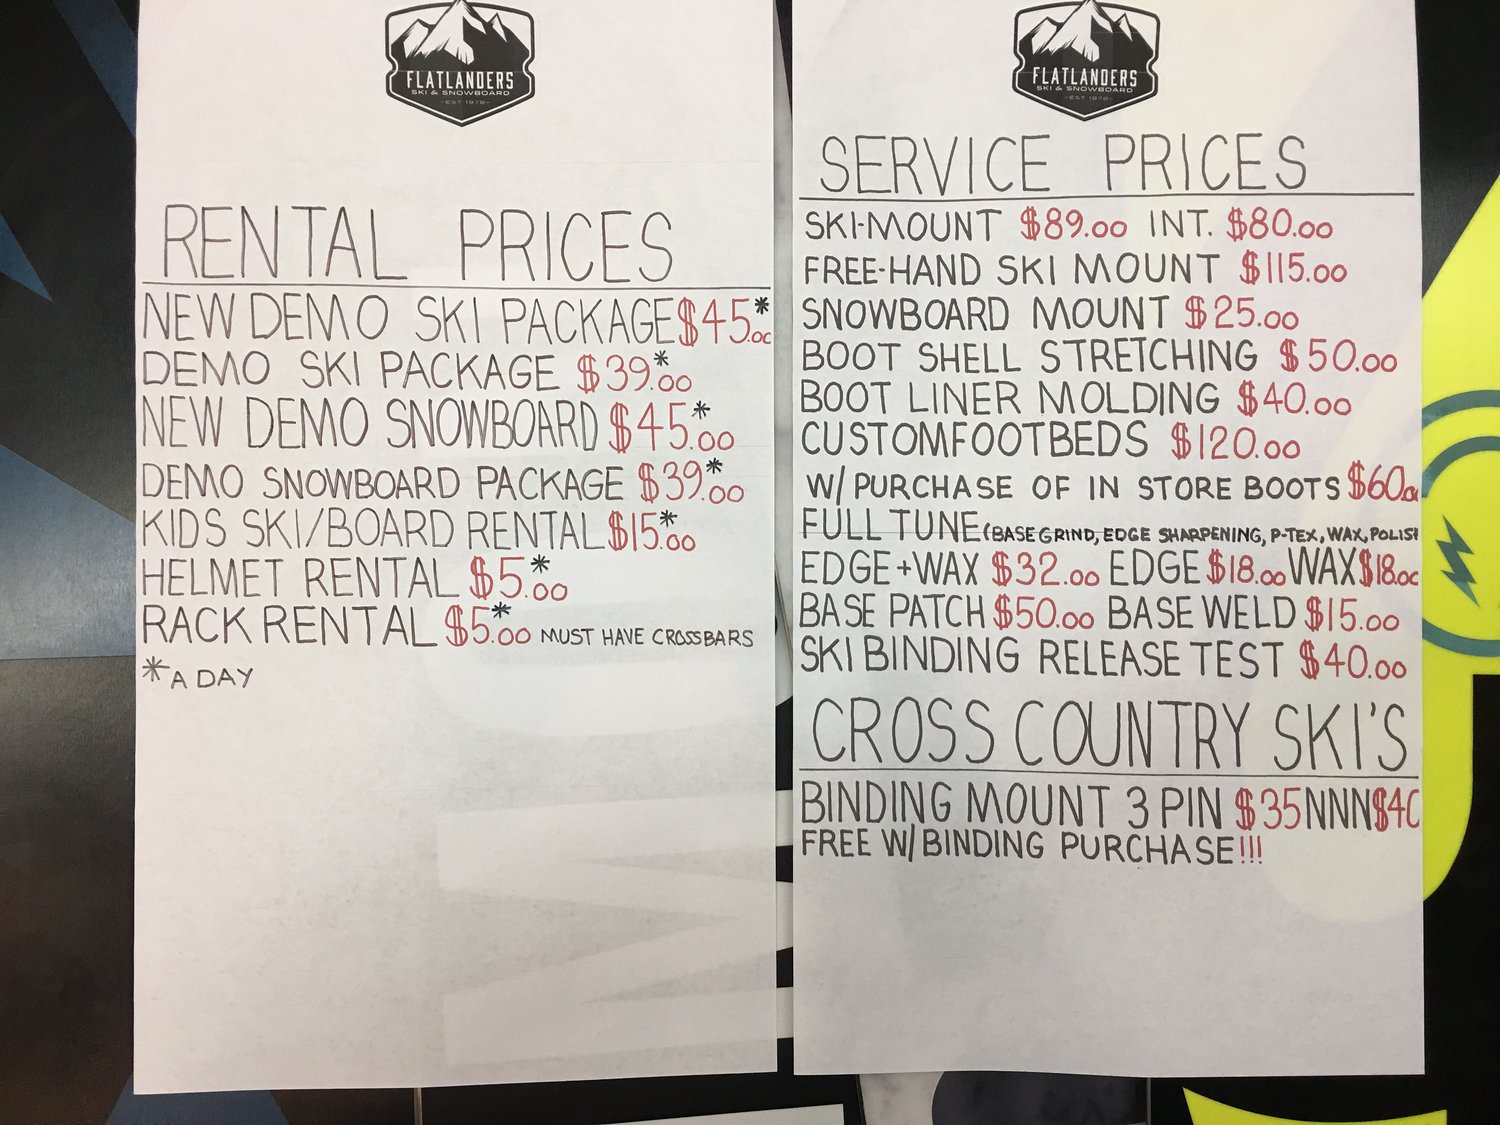 FLATLANDERS
SKI & SNOWBOARD
-EST 1978-
RENTAL PRICES
NEW DEMO SKI PACKAGE $45.00*
DEMO SKI PACKAGE $39.00*
NEW DEMO SNOWBOARD $45.00*
DEMO SNOWBOARD PACKAGE $39.00*
KIDS SKI/BOARD RENTAL $15.00*
HELMET RENTAL $5.00*
RACK RENTAL $5.00* MUST HAVE CROSSBARS
*A DAY
FLATLANDERS
SKI & SNOWBOARD
-EST 1978-
SERVICE PRICES
SKI-MOUNT $89.00 INT. $80.00
FREE-HAND SKI MOUNT $115.00
SNOWBOARD MOUNT $25.00
BOOT SHELL STRETCHING $50.00
BOOT LINER MOLDING $40.00
CUSTOM FOOTBEDS $120.00
W/ PURCHASE OF IN STORE BOOTS $60.00
FULL TUNE (BASE GRIND, EDGE SHARPENING, P-TEX, WAX, POLISH
EDGE+WAX $32.00 EDGE $18.00 WAX $18.00
BASE PATCH $50.00 BASE WELD $15.00
SKI BINDING RELEASE TEST $40.00
CROSS COUNTRY SKI'S
BINDING MOUNT 3 PIN $35 NNN $40
FREE W/ BINDING PURCHASE!!!